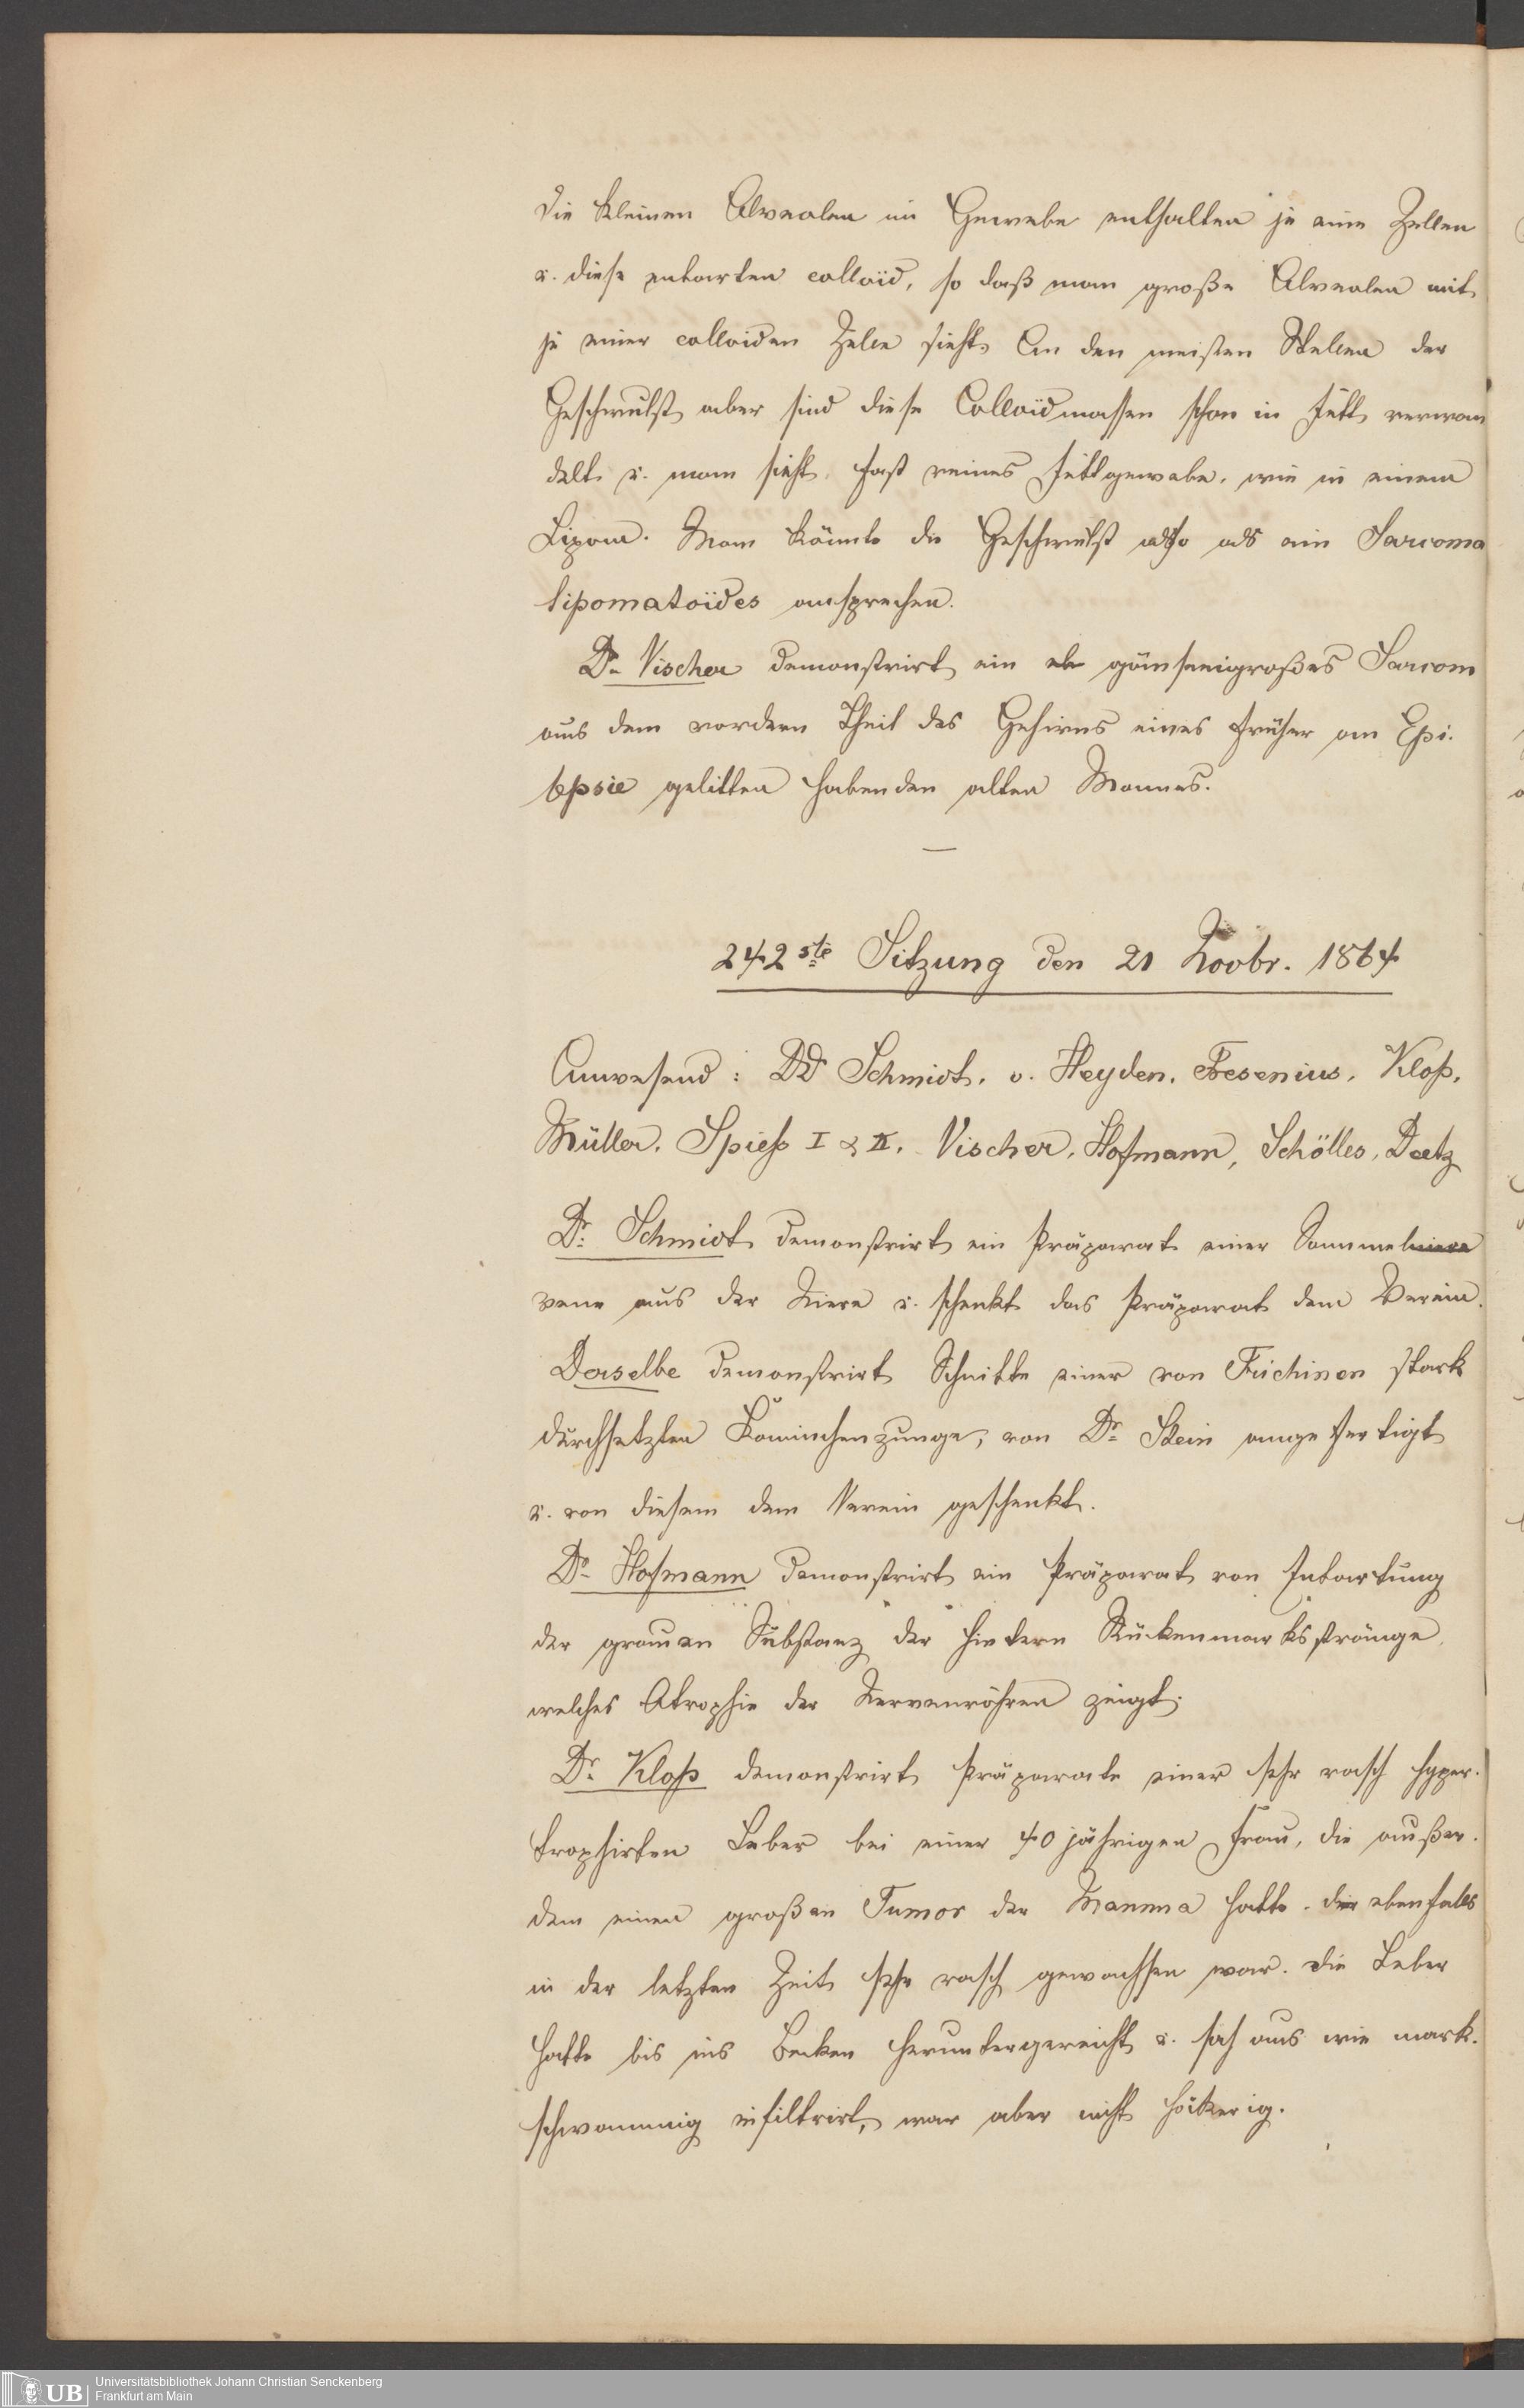 die kleinen Alveolen im Gewebe enthalten je eine Zellen
u. diese entarten colloïd, so daß man große Alveolen mit
je einer colloiden Zelle sieht. An den meisten Stellen der
Geschwulst aber sind diese Colloïdmassen schon in Fett verwan
delt u. man sieht fast reines Fettgewebe, wie in einem
Lipom. Man könnte die Geschwulst also als ein Sarcoma
lipomatoïdes ansprechen.
Dr. Vischer demonstrirt ein gänseeigroßes Sarcom
aus dem vordern Theil des Gehirns eines früher an Epi-
lepsie gelitten habenden alten Mannes.
—
242ste Sitzung den 21 Novbr. 1864
Anwesend: DD Schmidt, v. Heyden, Fresenius, Kloß,
Müller, Spieß I & II, Vischer, Hofmann, Schölles, Deetz
Dr. Schmidt demonstrirt ein Präparat einer Sammelniere
vene aus der Niere u. schenkt das Präparat dem Verein.
Derselbe demonstrirt Schnitte einer von Trichinen stark
durchsetzten Kaninchenzunge, von Dr. Stein angefertigt
u. von diesem dem Verein geschenkt.
Dr. Hofmann demonstrirt ein Präparat von Entartung
der grauen Substanz der hintern Rückenmarksstränge,
welches Atrophie der Nervenröhren zeigt.
Dr. Kloß demonstrirt Präparate einer sehr rasch hyper-
trophirten Leber bei einer 40 jährigen Frau, die außer-
dem einen großen Tumor der Mamma hatte, der ebenfalls
in der letzten Zeit sehr rasch gewachsen war. Die Leber
hatte bis ins Becken heruntergereicht u. sah aus wie mark-
schwammig infiltrirt, war aber nicht höckerig.
UB
Universitätsbibliothek Johann Christian Senckenberg
Frankfurt am Main